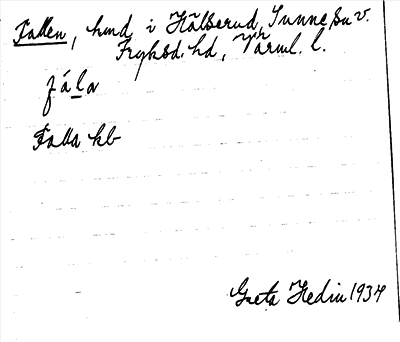 Fallen, hmd i Hälserud, Sunne sn v.
Fryksd. hd, Värml. l.
fála
Falla kb
Greta Hedin 1934